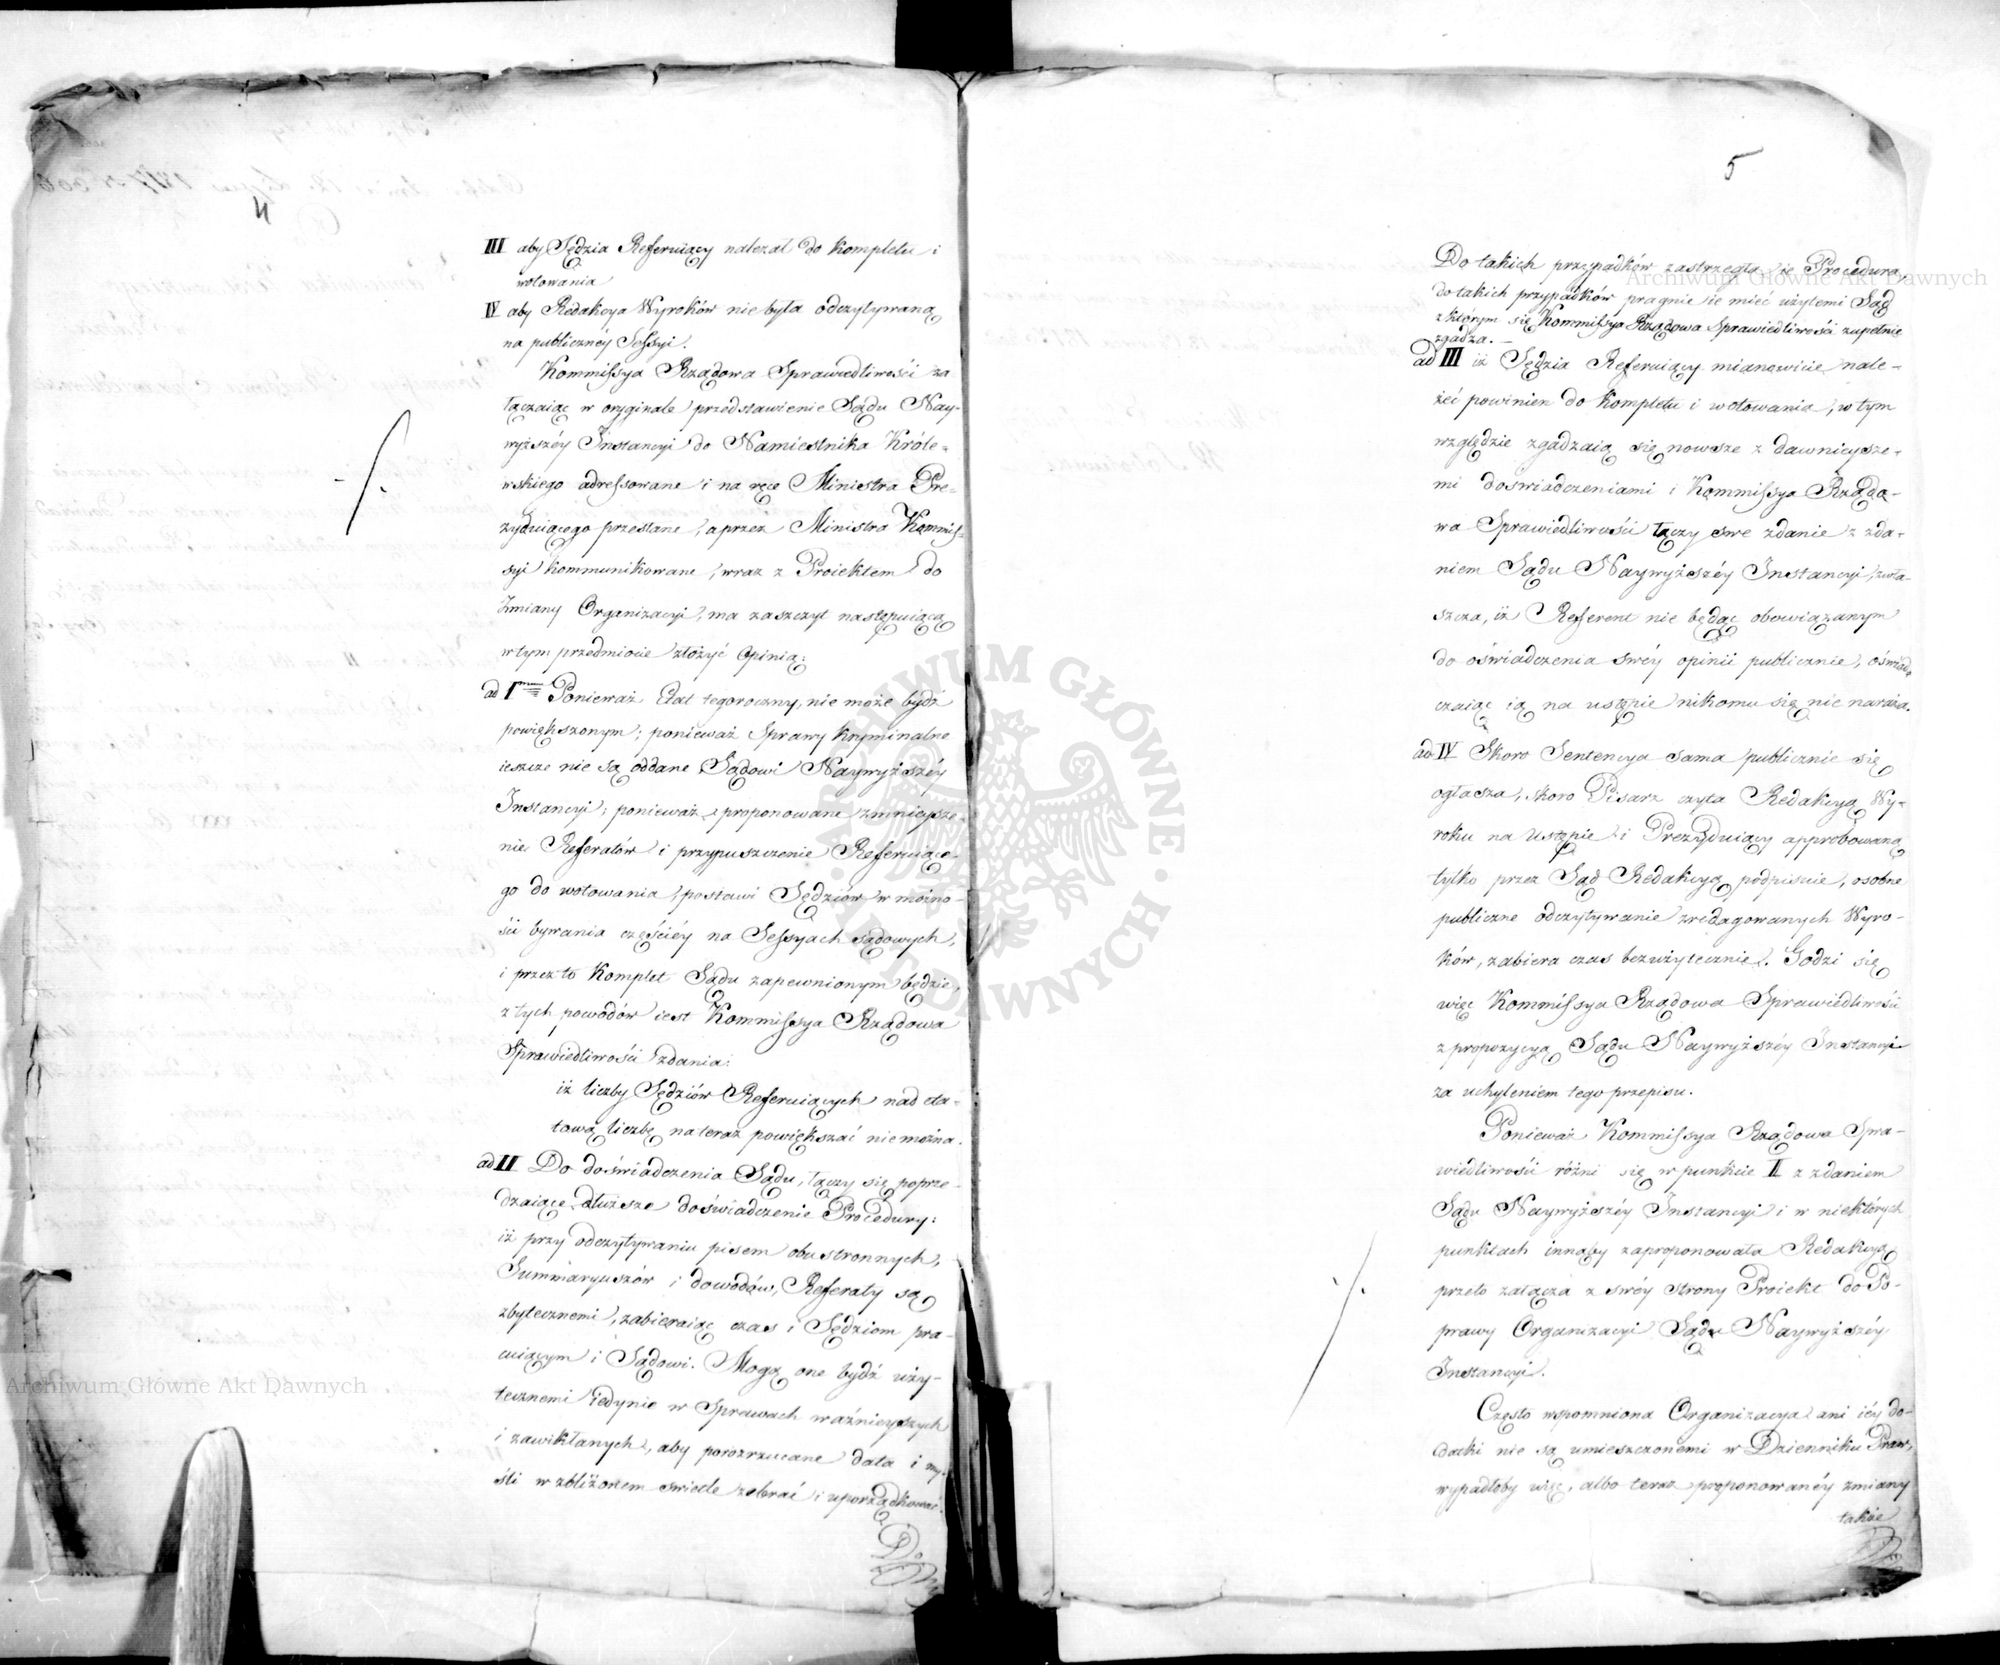 4
III aby Sędzia Referuiący należał do Kompletu i
wotowania
IV aby Redakcya Wyroków nie była odczytywaną
na publicznéy Sessyi.
Kommissya Rządowa Sprawiedliwości za
łączaiąc w oryginale przedstawienie Sądu Nay-
wyższéy Instancyi do Namiestnika Króle-
wskiego adressowane i na ręce Ministra Pre-
zyduiącego przesłane, a przez Ministra Kommis-
syi kommunikowane, wraz z Proiektem do
Zmiany Organizacyi, ma zaszczyt następuiącą
w tym przedmiocie złożyć Opinią:
ad Imum Ponieważ Etat tegoroczny, nie może bydź
powiększonym; ponieważ Sprawy kryminalne
ieszcze nie są oddane Sądowi Naywyższéy
Instancyi; ponieważ proponowane zmnieysze-
nie Referatów i przypuszczenie Referuiące-
go do wotowania, postawi Sędziów w możno-
ści bywania częściéy na Sessyach sądowych,
i przez to Komplet Sądu zapewnionym będzie,
z tych powodów iest Kommissya Rządowa
Sprawiedliwości zdania:
iż liczby Sędziów Referuiących nad eta-
tową liczbę na teraz powiększać nie można.
ad II Do doświadczenia Sądu, łączy się poprze-
dzaiące dłuższe doświadczenie Procedury:
iż przy odczytywaniu pisem obustronnych,
Summaryuszów i dowodów, Referaty są
zbytecznemi, zabieraiąc czas i Sędziom pra-
cuiącym i Sądowi. Mogą one bydź uży-
tecznemi iedynie w Sprawach ważnieyszych
i zawikłanych, aby porozrzucane data i my-
śli w zbliżonem świetle zebrać i uporządkować.
Do
5
Do takich przypadków zastrzegła ie Procedura,
do takich przypadków pragnie ie mieć użytemi Sąd
z którym się Kommissya Rządowa Sprawiedliwości zupełnie
zgadza. —
ad III iż Sędzia Referuiący mianowicie nale-
żeć powinien do Kompletu i wotowania, w tym
względzie zgadzaią się nowsze z dawnieysze-
mi doswiadczeniami i Kommissya Rządo-
wa Sprawiedliwości łączy swe zdanie z zda-
niem Sądu Naywyższéy Instancyi, zwła-
szcza, iż Referent nie będąc obowiązanym
do oświadczenia swéy opinii publicznie, oświad-
czaiąc ią na ustępie nikomu się nie naraża.
ad IV Skoro Sentencya sama publicznie się
ogłasza, skoro Pisarz czyta Redakcyą Wy-
roku na Ustępie i Prezyduiący approbowaną
tylko przez Sąd Redakcyą podpisuie, osobne
publiczne odczytywanie zredagowanych Wyro-
ków, zabiera czas bezużytecznie. Godzi się
więc Kommissya Rządowa Sprawiedliwości
z propozycyą Sądu Naywyższéy Instancyi
za uchyleniem tego przepisu.
Ponieważ Kommissya Rządowa Spra-
wiedliwości różni się w punkcie II z zdaniem
Sądu Naywyższéy Instancyi i w niektórych
punktach innąby zaproponowała Redakcyą
przeto załącza z swéy strony Proiekt do Po-
prawy Organizacyi Sądu Naywyższéy
Instancyi.
Często wspomniona Organizacya ani iéy do-
datki nie są umieszczonemi w Dzienniku Praw,
wypadłoby więc, albo teraz proponowanéy zmiany
takie
Archiwum Główne Akt Dawnych
Archiwum Główne Akt Dawnych
ARCHIWUM GŁÓWNE · AKT DAWNYCH ·